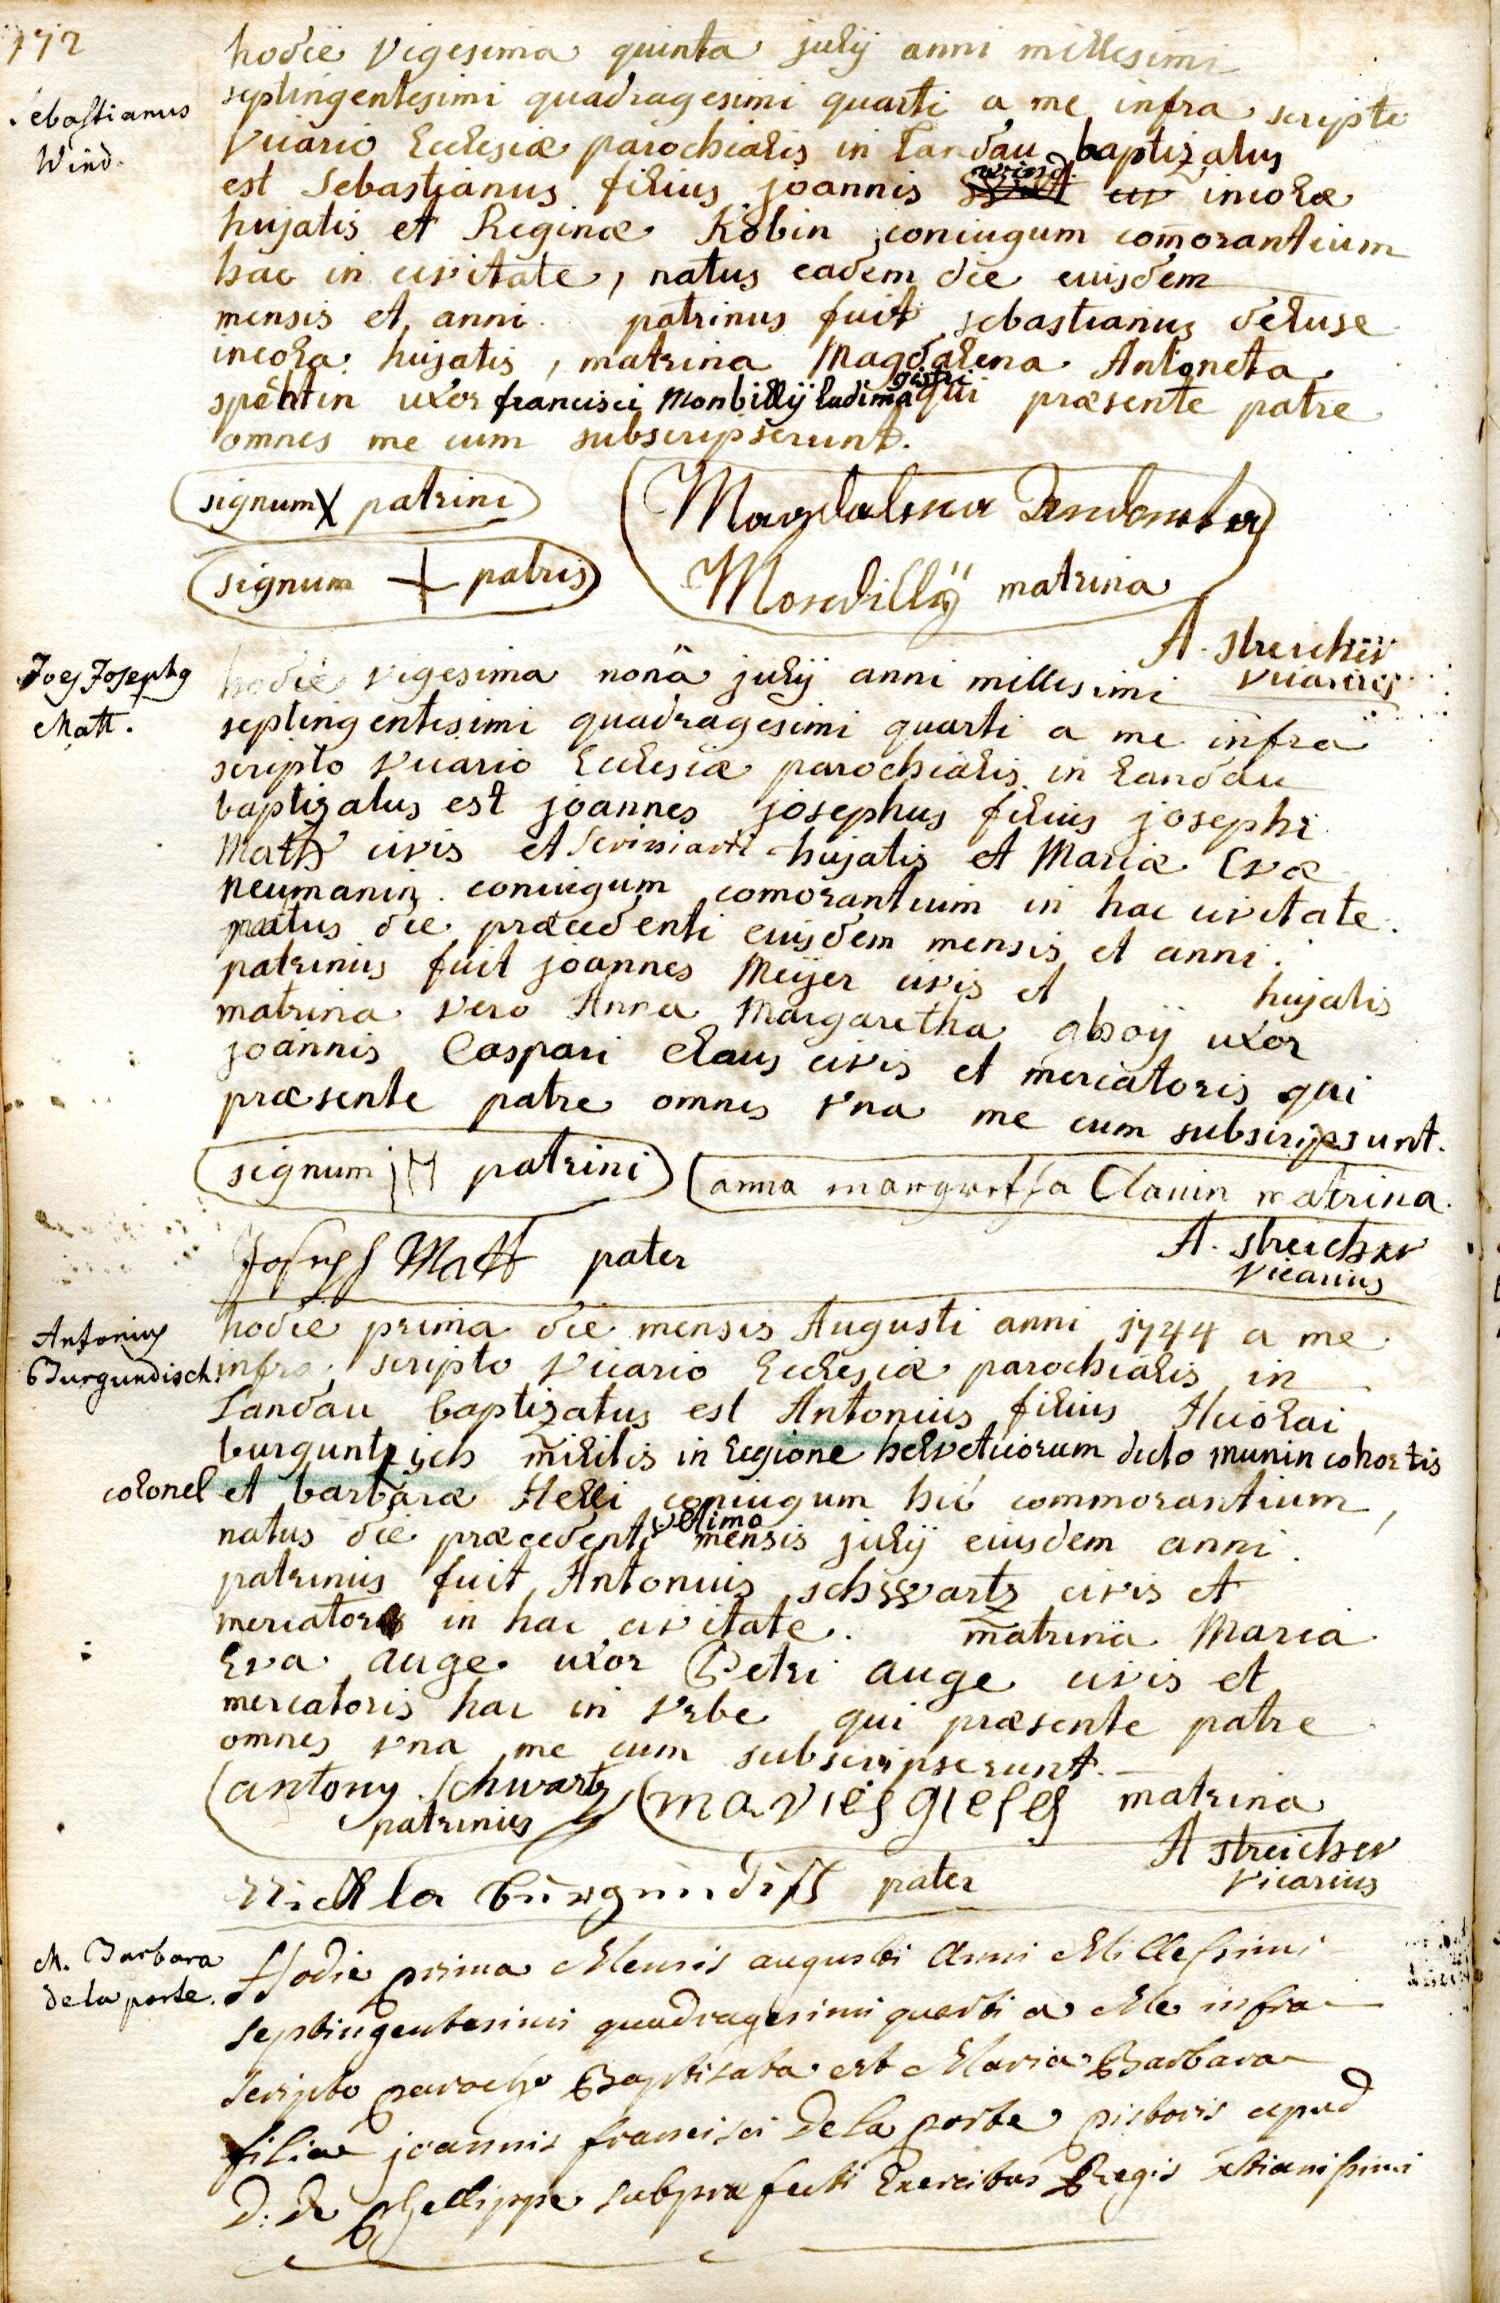 172
Sebastianus
Wind.
hodie vigesima quinta julij anni millesimi
septingentesimi quadragesimi quarti a me infra scripto
vicario Ecclesiæ parochialis in Landau baptizatus
est Sebastianus filius joannis wind incolæ
hujatis et Reginæ Kobin coniugum comorantium
hac in civitate, natus eadem die eiusdem
mensis et anni. patrinus fuit sebastianus deluse
incola hujatis, matrina Magdalena Antoneta
spehtin uxor francisci Monbillij ludimagistri qui præsente patre
omnes me cum subscripserunt.
signum X patrini
Magdalena
signum + patris
matrina
A. streicher
vicarius
Joes Josephg
Matt.
hodie vigesima nona julij anni millesimi
septingentesimi quadragesimi quarti a me infra
scripto vicario Ecclesiæ parochialis in Landau
baptizatus est joannes josephus filius josephi
Math civis et scriniarii hujatis et Mariæ Evæ
Neumanin coniugum comorantium in hac civitate.
natus die præcedenti eiusdem mensis et anni.
patrinus fuit joannes Meijer civis et hujatis
matrina vero Anna Margaretha gboij uxor
joannis Caspari Claus civis et mercatoris qui
præsente patre omnes vna me cum subscripsunt.
signum patrini
anna margretha Clausin matrina.
Joseph Matt pater
A. streicher
vicarius
Antonius
Burgundisch.
hodie prima die mensis Augusti anni 1744 a me
infra scripto vicario Ecclesiæ parochialis in
Landau baptizatus est Antonius filius Nicolai
burguntzich militis in legione helveticorum dicto munin cohortis
colonel et barbaræ Helli coniugum hic commorantium,
natus die præcedenti vltimo mensis julij eiusdem anni.
patrinus fuit Antonius schwartz civis et
mercator in hac civitate. matrina Maria
Eva auge uxor Petri auge civis et
mercatoris hac in vrbe qui præsente patre
omnes vna me cum subscripserunt.
antony schwartz
patrinus
matrina
A streicher
vicarius
Nickla burgundish pater
M. Barbara
de la porte.
Hodie prima Mensis augusti Anni Millesimi
septingentesimi quadragesimi quarti a Me infra
scripto parocho Baptisata est Maria Barbara
filia joannis francisci De la porte pistoris apud
D: de Phelippe subpræfecti Exercitus Regis Xtianissimi